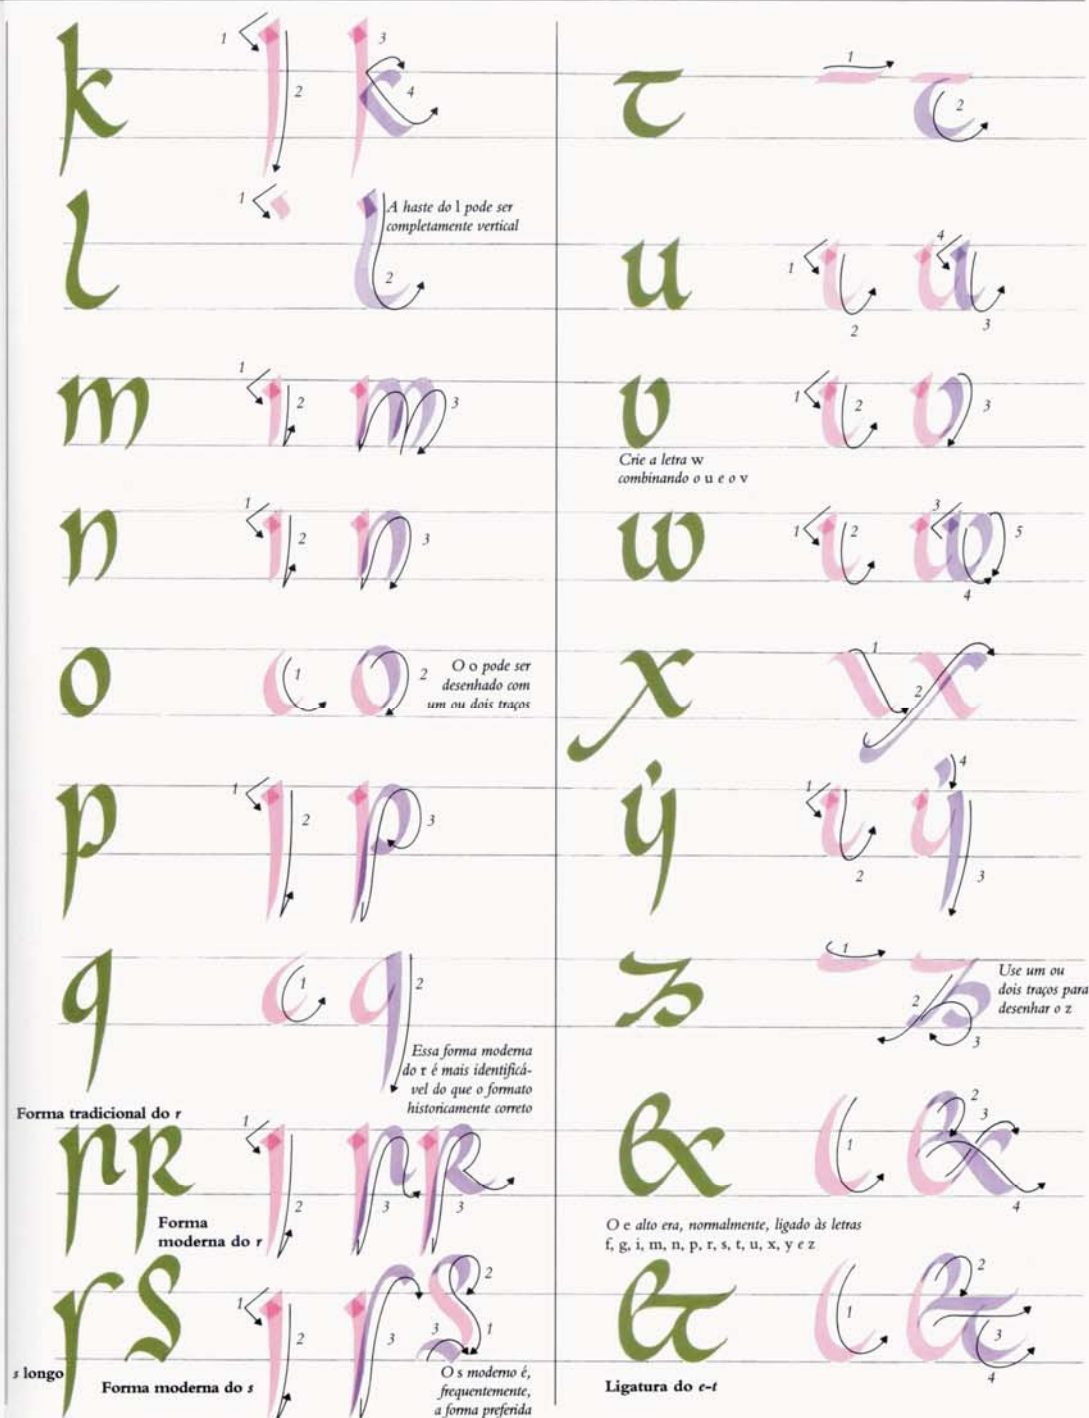 k 1 2 3 4
l 1 2
A haste do l pode ser
completamente vertical
m 1 2 3
n 1 2 3
o 1 2
O o pode ser
desenhado com
um ou dois traços
p 1 2 3
q 1 2
Essa forma moderna
do r é mais identificá-
vel do que o formato
historicamente correto
Forma tradicional do r
r r 1 2 3 3
Forma
moderna do r
ſ s 1 2 3 3 2 1
s longo
Forma moderna do s
O s moderno é,
frequentemente,
a forma preferida
t 1 2
u 1 2 4 3
v 1 2 3
Crie a letra w
combinando o u e o v
w 1 2 3 5 4
x 1 2
ẏ 1 2 4 3
z 1 2 3
Use um ou
dois traços para
desenhar o z
& 1 2 3 4
O e alto era, normalmente, ligado às letras
f, g, i, m, n, p, r, s, t, u, x, y e z
et 1 2 3 4
Ligatura do e-t